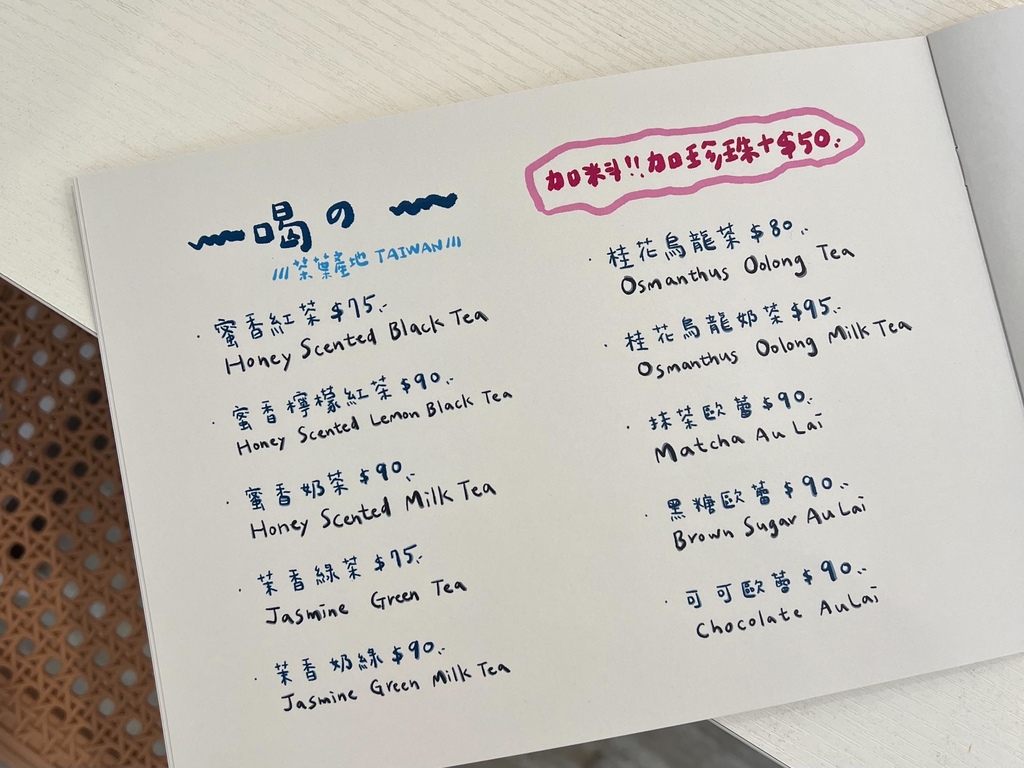 喝の
茶葉產地 TAIWAN
蜜香紅茶 $75..
Honey Scented Black Tea
蜜香檸檬紅茶 $90..
Honey Scented Lemon Black Tea
蜜香奶茶 $90..
Honey Scented Milk Tea
茉香綠茶 $75..
Jasmine Green Tea
茉香奶綠 $90..
Jasmine Green Milk Tea
加料!!加珍珠+$50..
桂花烏龍茶 $80..
Osmanthus Oolong Tea
桂花烏龍奶茶 $95..
Osmanthus Oolong Milk Tea
抹茶歐蕾 $90..
Matcha Au Lai
黑糖歐蕾 $90..
Brown Sugar Au Lai
可可歐蕾 $90..
Chocolate Au Lai